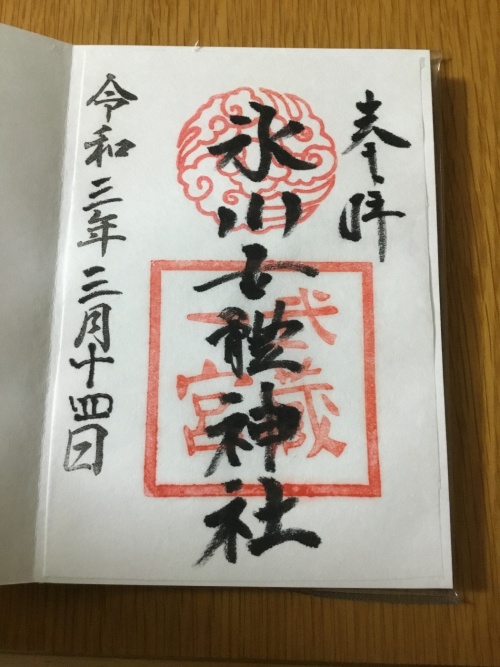 奉拝
氷川女體神社
武蔵
一宮
令和三年三月十四日